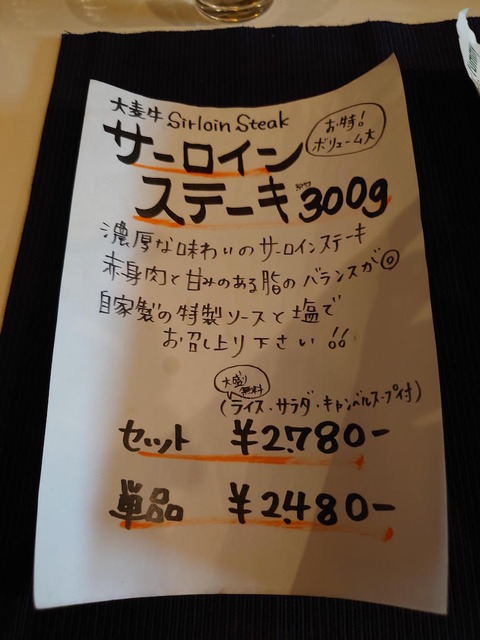 大麦牛 Sirloin Steak
お特!
ボリューム大
サーロイン
ステーキ 300g
濃厚な味わいのサーロインステーキ
赤身肉と甘みのある脂のバランスが◎
自家製の特製ソースと塩で
お召し上り下さい!!
大盛り
無料
(ライス・サラダ・キャンベルスープ付)
セット ¥2.780-
単品 ¥2.480-